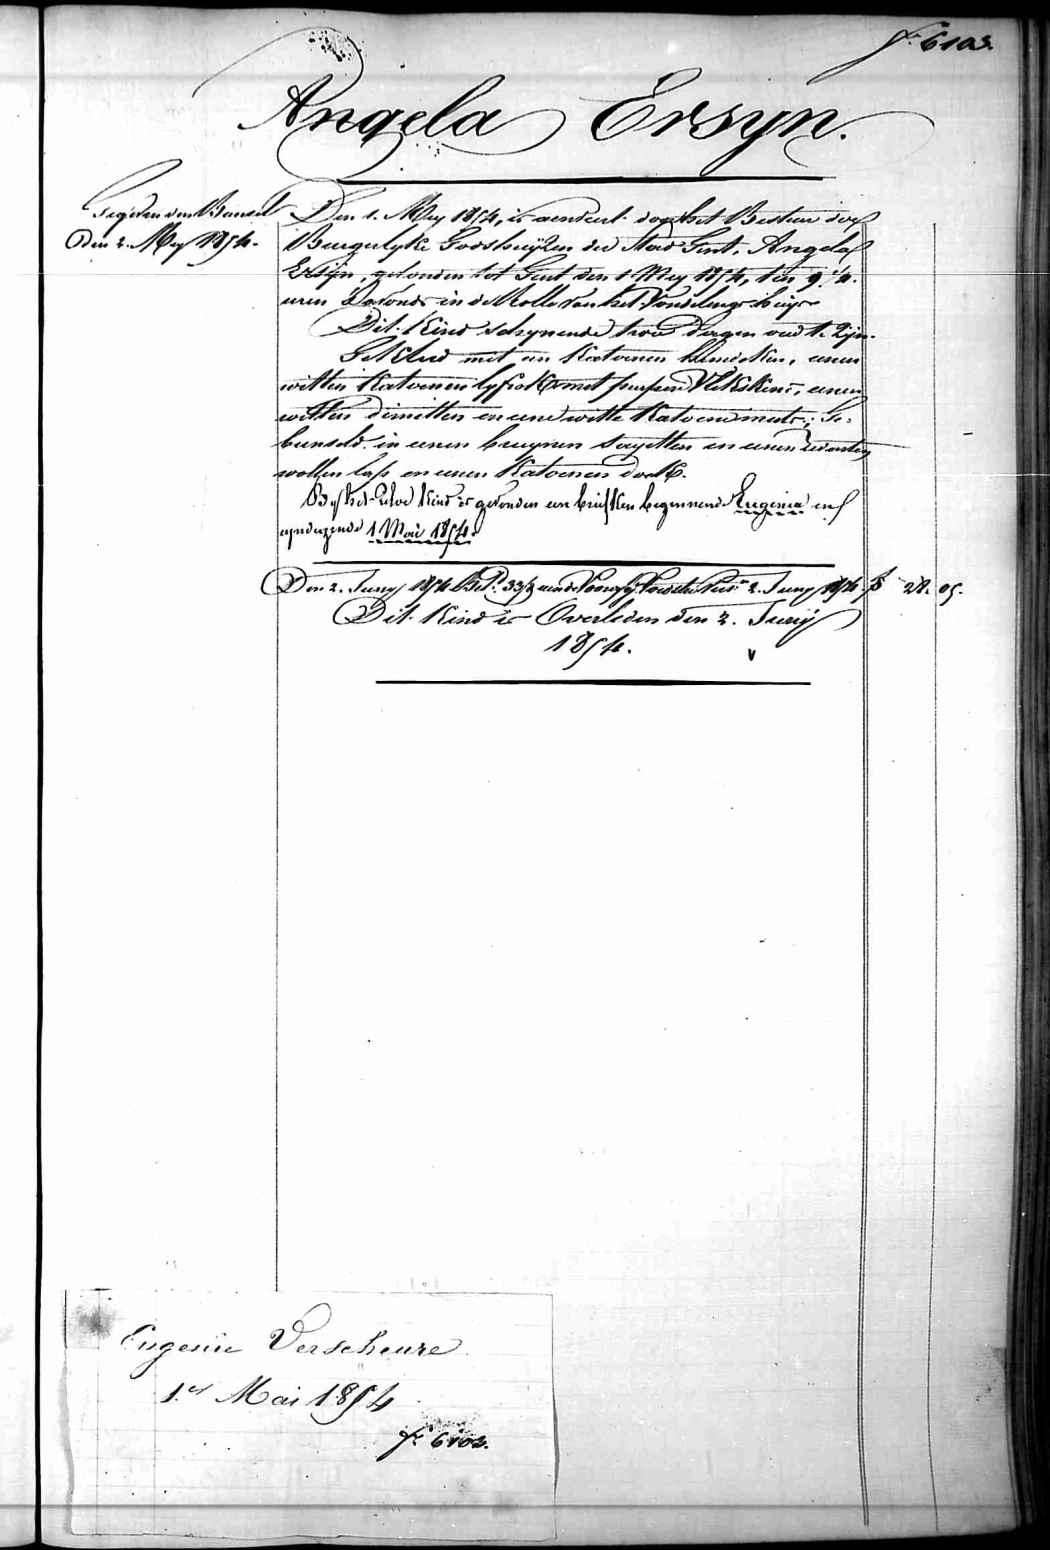 fº 6102.
Angela Ersyn.
den Bundel
Den 2. Mey 1854.
Den 1. Mey 1854, is aenveerd door het Bestier der
Burgerlyke Godshuyzen der Stad Gent, Angela
Ersyn, gevonden tot Gent den 1 Mey 1854, ten 9 1/4
uren S'avonds in de Rolle van het Vondelingshuys
Dit Kind schynende twee dagen oud te zyn.
Gekleed met een Katoenen hemdeken, eenen
witten Katoenen lyfrok met purpere Vlekskens, eenen
witten dimitten en eene witte Katoene muts; Ge-
bunseld in eenen bruynen sayetten en eenen
wollen lap en eenen Katoenen doek.
By het zelve Kind is gevonden een briefken beginnende Eugenie en
eyndigende 1 Mai 1854.
Den 2. Juny 1854 2. Juny 1854 28. 05.
Dit Kind is Overleden den 2. Juny
1854.
Eugenie Verscheure
1.er Mai 1854
fº 6102.